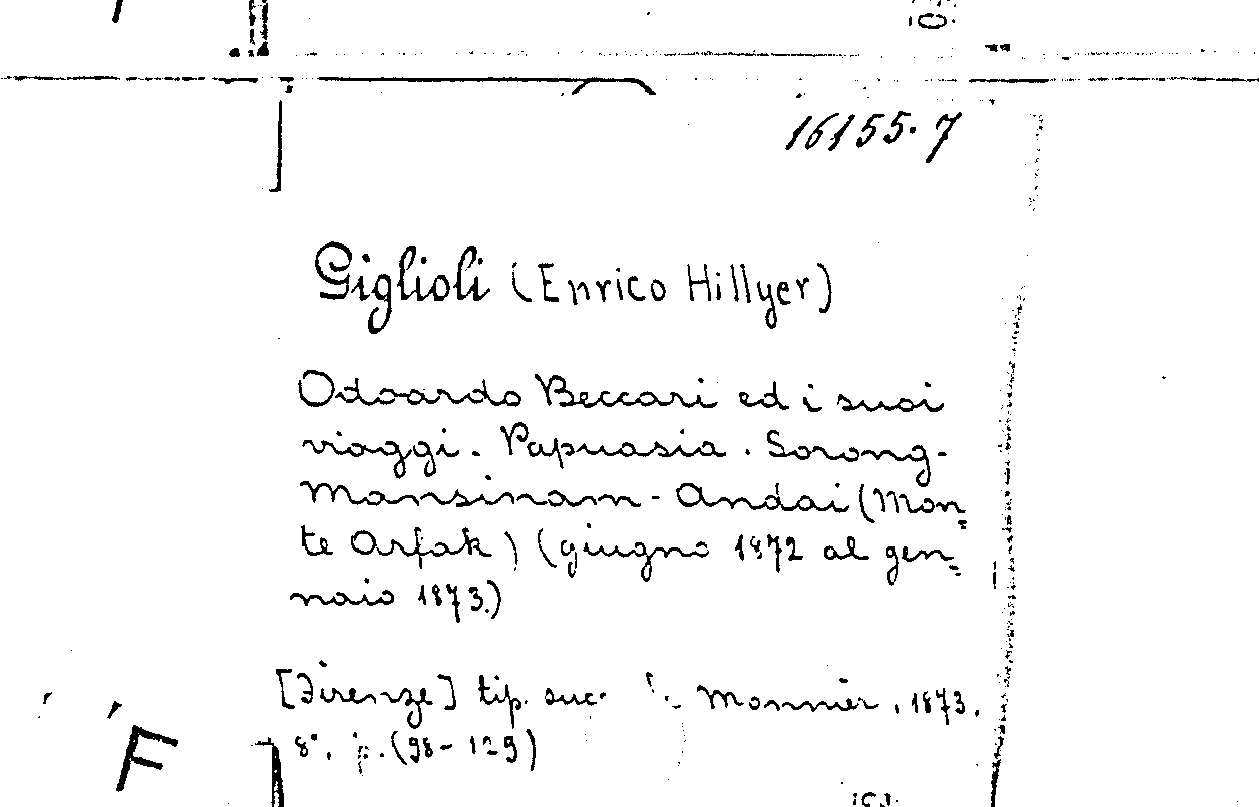 16155.7
Giglioli (Enrico Hillyer)
Odoardo Beccari ed i suoi
viaggi. Papuasia. Sorong-
Mansinam - Andai (Mon=
te Arfak) (giugno 1872 al gen=
naio 1873.)
[Firenze] tip. suc. Monnier, 1873.
8°. p. (98-129)
F